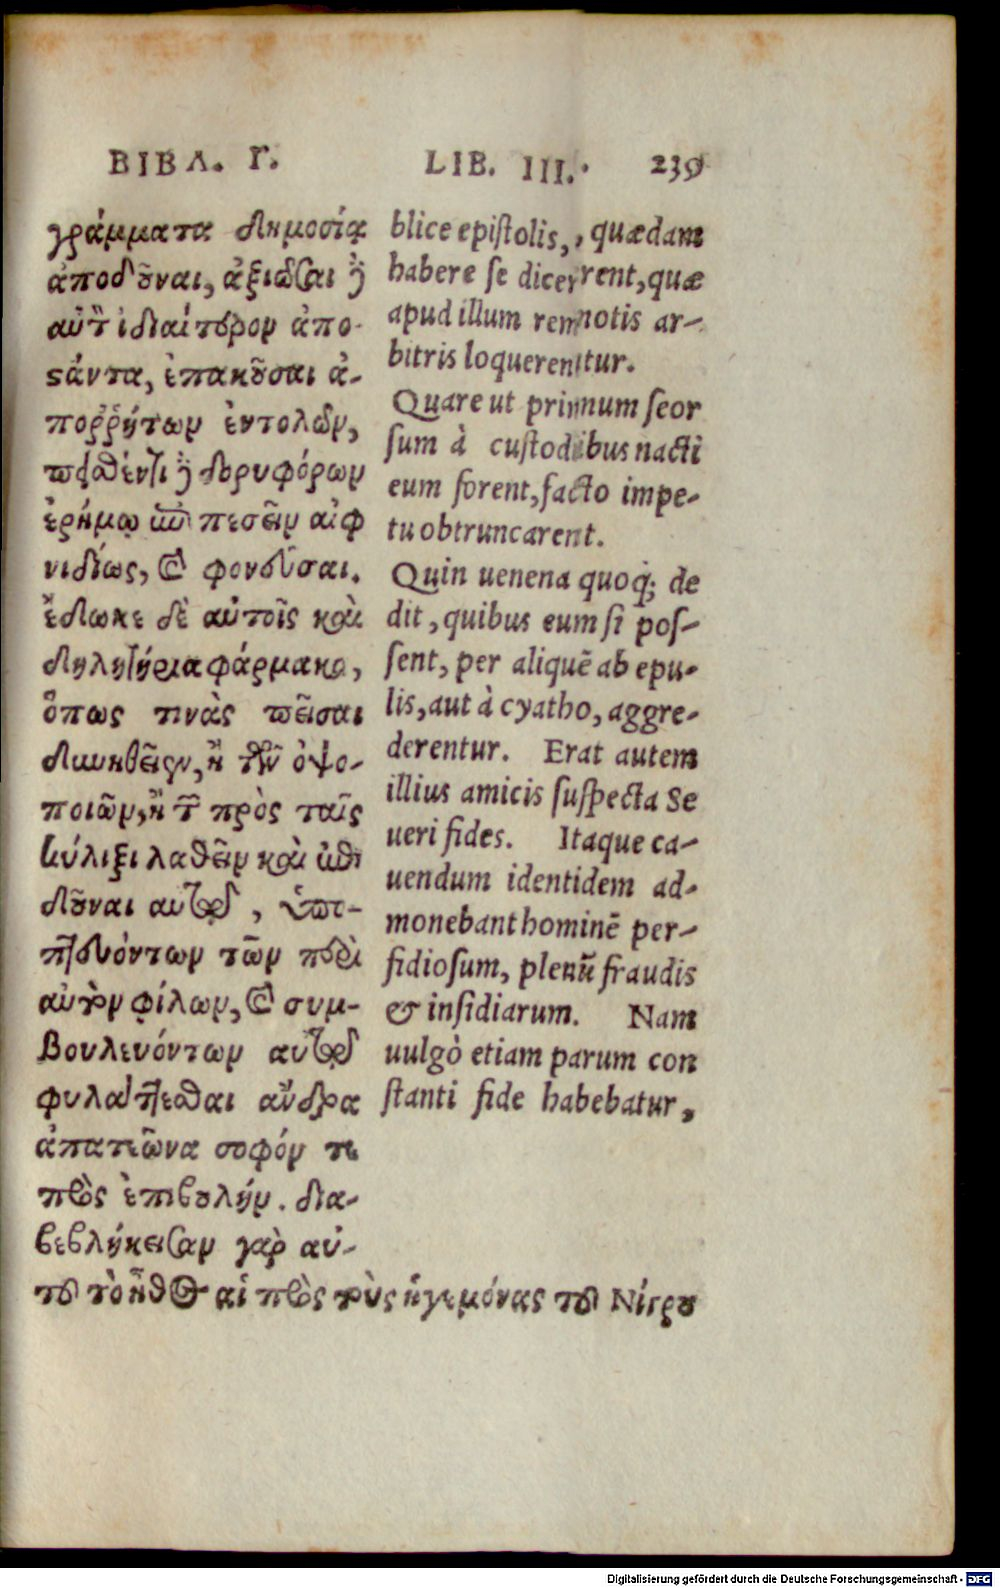 ΒΙΒΛ. Γ.
γράμματα δημοσίᾳ
ἀποδοῦναι, ἀξιῶσαι δὲ
αὐτὸν ἰδιαίτερον ἀπο-
στάντα, ἐπακοῦσαι ἀ-
ποῤῥήτων ἐντολῶν,
πεισθέντι δὲ δορυφόρων
ἐρήμῳ ἐπιπεσεῖν αἰφ
νιδίως, καὶ φονεῦσαι.
ἔδωκε δὲ αὐτοῖς καὶ
δηλητήρια φάρμακα,
ὅπως τινὰς πεῖσαι
δυνηθεῖεν, ἢ τῶν ὀψο-
ποιῶν, ἢ τῶν πρὸς ταῖς
κύλιξι λαθεῖν καὶ ἐπι
δοῦναι αὐτῷ, ὑπο-
πτευόντων τῶν περὶ
αὐτὸν φίλων, καὶ συμ-
βουλευόντων αὐτῷ
φυλάττεσθαι ἄνδρα
ἀπατεῶνα σοφόν τε
πρὸς ἐπιβουλήν. δια-
βεβλήκεισαν γὰρ αὐ-
τοῦ τὸ ἦθος αἱ πρὸς τοὺς ἡγεμόνας τοῦ Νίγρου
LIB. III. 239
blice epistolis, quædam
habere se dicerent, quæ
apud illum remotis ar-
bitris loquerentur.
Quare ut primum seor
sum à custodibus nacti
eum forent, facto impe-
tu obtruncarent.
Quin uenena quoq; de
dit, quibus eum si pos-
sent, per aliquē ab epu-
lis, aut à cyatho, aggre-
derentur. Erat autem
illius amicis suspecta Se
ueri fides. Itaque ca-
uendum identidem ad-
monebant hominē per-
fidiosum, plenū fraudis
& insidiarum. Nam
uulgò etiam parum con
stanti fide habebatur,
Digitalisierung gefördert durch die Deutsche Forschungsgemeinschaft - DFG